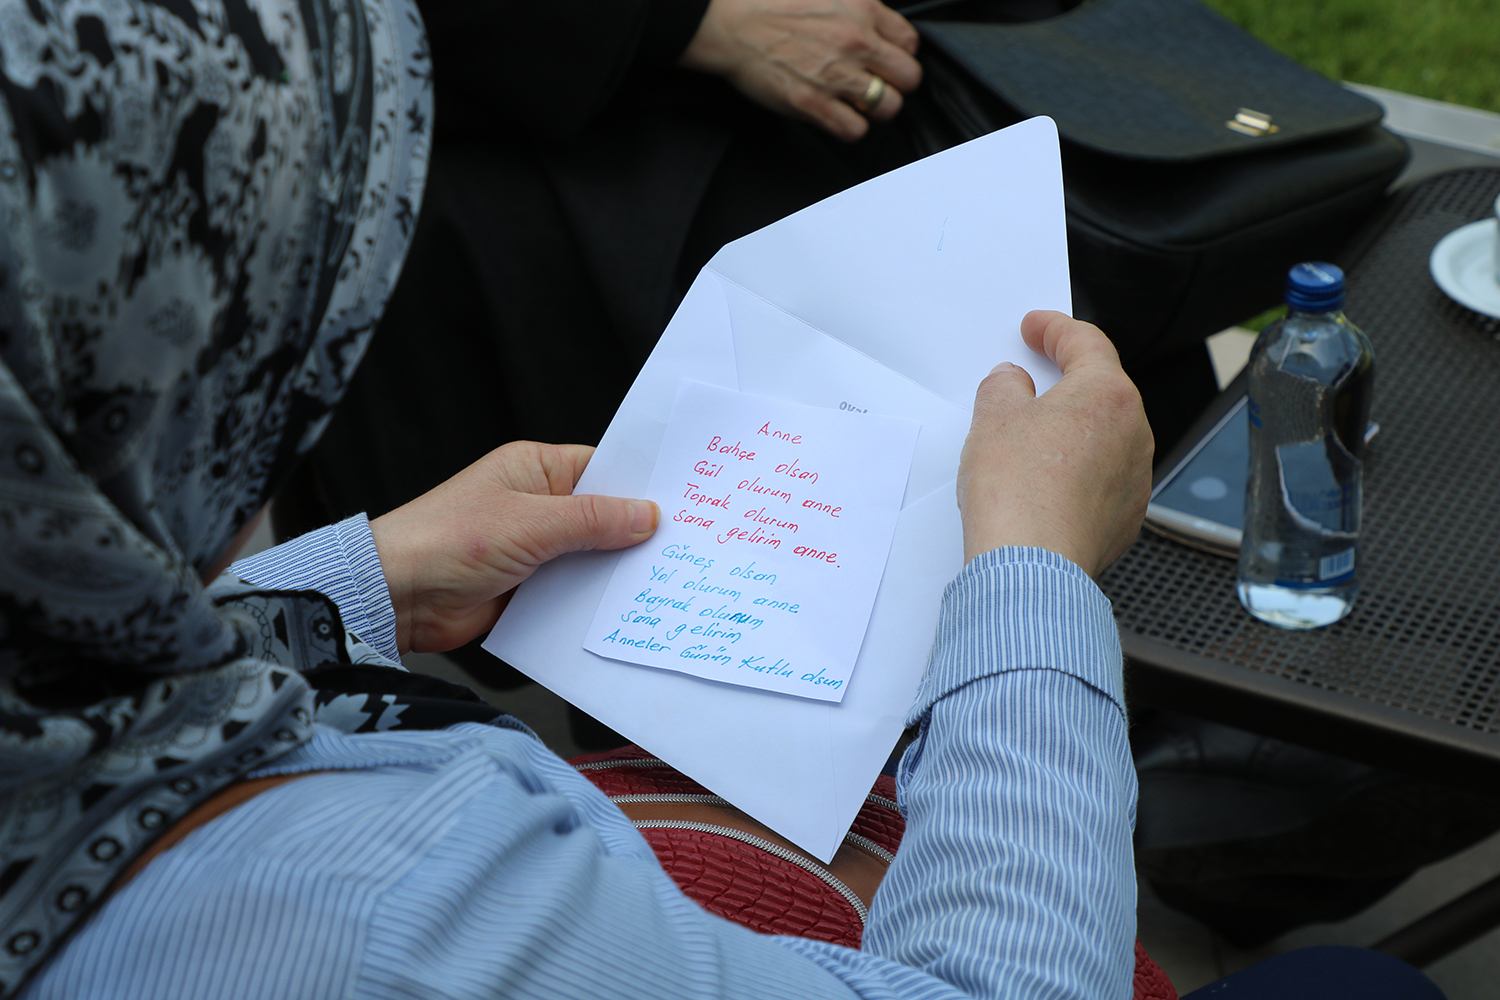 Anne
Bahçe olsan
Gül olurum anne
Toprak olurum
Sana gelirim anne.
Güneş olsan
Yol olurum anne
Bayrak olurum
Sana gelirim
Anneler Günün Kutlu olsun